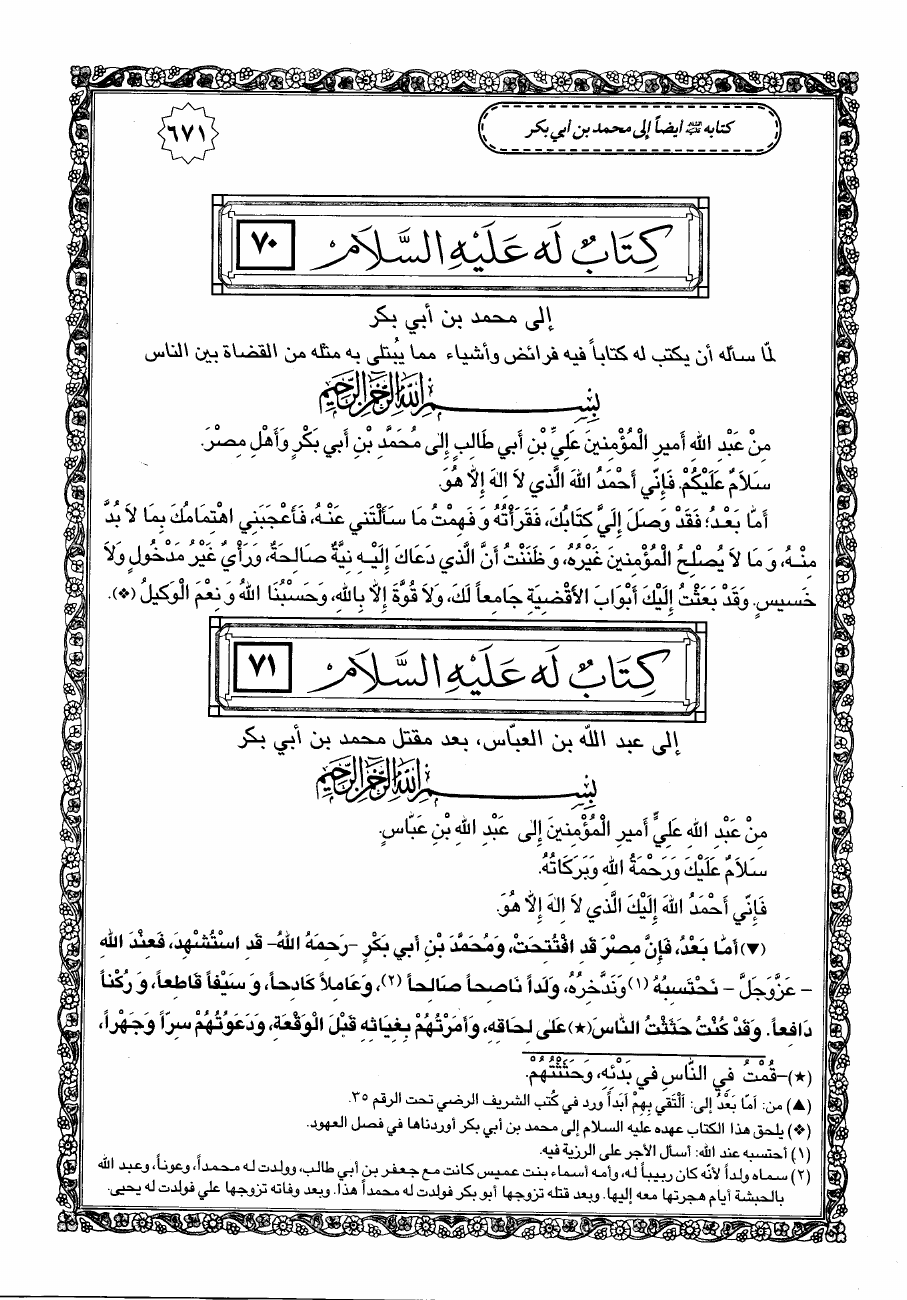 كتابه عليه السلام أيضاً إلى محمد بن أبي بكر
٦٧١
كِتَابٌ لَه عَلَيْهِ السَّلَامُ
٧٠
إلى محمد بن أبي بكر
لمّا سأله أن يكتب له كتاباً فيه فرائض وأشياء مما يُبتلى به مثله من القضاة بين الناس
بِسْمِ اللهِ الرَّحْمنِ الرَّحِيمِ
مِنْ عَبْدِ اللهِ أَميرِ الْمُؤْمِنينَ عَلِيِّ بْنِ أَبي طَالِبٍ إِلى مُحَمَّدِ بْنِ أَبي بَكْرٍ وَأَهْلِ مِصْرَ.
سَلَامٌ عَلَيْكُمْ. فَإِنّي أَحْمَدُ اللهَ الَّذي لاَ اِلهَ إِلاَّ هُوَ.
أَمَّا بَعْدُ؛ فَقَدْ وَصَلَ إِلَيَّ كِتَابُكَ، فَقَرَأْتُهُ وَفَهِمْتُ مَا سَأَلْتَني عَنْهُ، فَأَعْجَبَنِي اهْتِمَامُكَ بِمَا لاَ بُدَّ
مِنْهُ، وَمَا لاَ يُصْلِحُ الْمُؤْمِنينَ غَيْرُهُ، وَظَنَنْتُ أَنَّ الَّذي دَعَاكَ إِلَيْهِ نِيَّةٌ صَالِحَةٌ، وَرَأْيٌ غَيْرُ مَدْخُولٍ وَلاَ
خَسيسٍ. وَقَدْ بَعَثْتُ إِلَيْكَ أَبْوَابَ الأَقْضِيَةِ جَامِعاً لَكَ، وَلاَ قُوَّةَ إِلاَّ بِاللهِ، وَحَسْبُنَا اللهُ وَنِعْمَ الْوَكيلُ (❖).
كِتَابٌ لَه عَلَيْهِ السَّلَامُ
٧١
إلى عبد اللّه بن العبّاس، بعد مقتل محمد بن أبي بكر
بِسْمِ اللهِ الرَّحْمنِ الرَّحِيمِ
مِنْ عَبْدِ اللهِ عَلِيٍّ أَميرِ الْمُؤْمِنينَ إِلى عَبْدِ اللهِ بْنِ عَبَّاسٍ.
سَلَامٌ عَلَيْكَ وَرَحْمَةُ اللهِ وَبَرَكَاتُهُ.
فَإِنّي أَحْمَدُ اللهَ إِلَيْكَ الَّذي لاَ اِلهَ إِلاَّ هُوَ.
(▼) أَمَّا بَعْدُ، فَإِنَّ مِصْرَ قَدِ افْتُتِحَتْ، وَمُحَمَّدَ بْنَ أَبي بَكْرٍ -رَحِمَهُ اللهُ- قَدِ اسْتُشْهِدَ، فَعِنْدَ اللهِ
- عَزَّوَجَلَّ - نَحْتَسِبُهُ (١) وَنَدَّخِرُهُ، وَلَداً نَاصِحاً صَالِحاً (٢)، وَعَامِلاً كَادِحاً، وَسَيْفاً قَاطِعاً، وَرُكْناً
دَافِعاً. وَقَدْ كُنْتُ حَثَثْتُ النَّاسَ (★) عَلى لِحَاقِهِ، وَأَمَرْتُهُمْ بِغِيَاثِهِ قَبْلَ الْوَقْعَةِ، وَدَعَوْتُهُمْ سِرّاً وَجَهْراً،
(★)-قُمْتُ فِي النَّاسِ في بَدْئِهِ، وَحَثَثْتُهُمْ.
(▲) من: أَمَّا بَعْدُ إلى: أَلْتَقي بِهِمْ أَبَداً ورد في كُتب الشريف الرضي تحت الرقم ٣٥.
(❖) يلحق هذا الكتاب عهده عليه السلام إلى محمد بن أبي بكر أوردناها في فصل العهود.
(١) أحتسبه عند الله: أسأل الأجر على الرزية فيه.
(٢) سماه ولداً لأنه كان ربيباً له، وأمه أسماء بنت عميس كانت مع جعفر بن أبي طالب، وولدت له محمداً، وعوناً، وعبد الله
بالحبشة أيام هجرتها معه إليها. وبعد قتله تزوجها أبو بكر فولدت له محمداً هذا. وبعد وفاته تزوجها علي فولدت له يحيى.